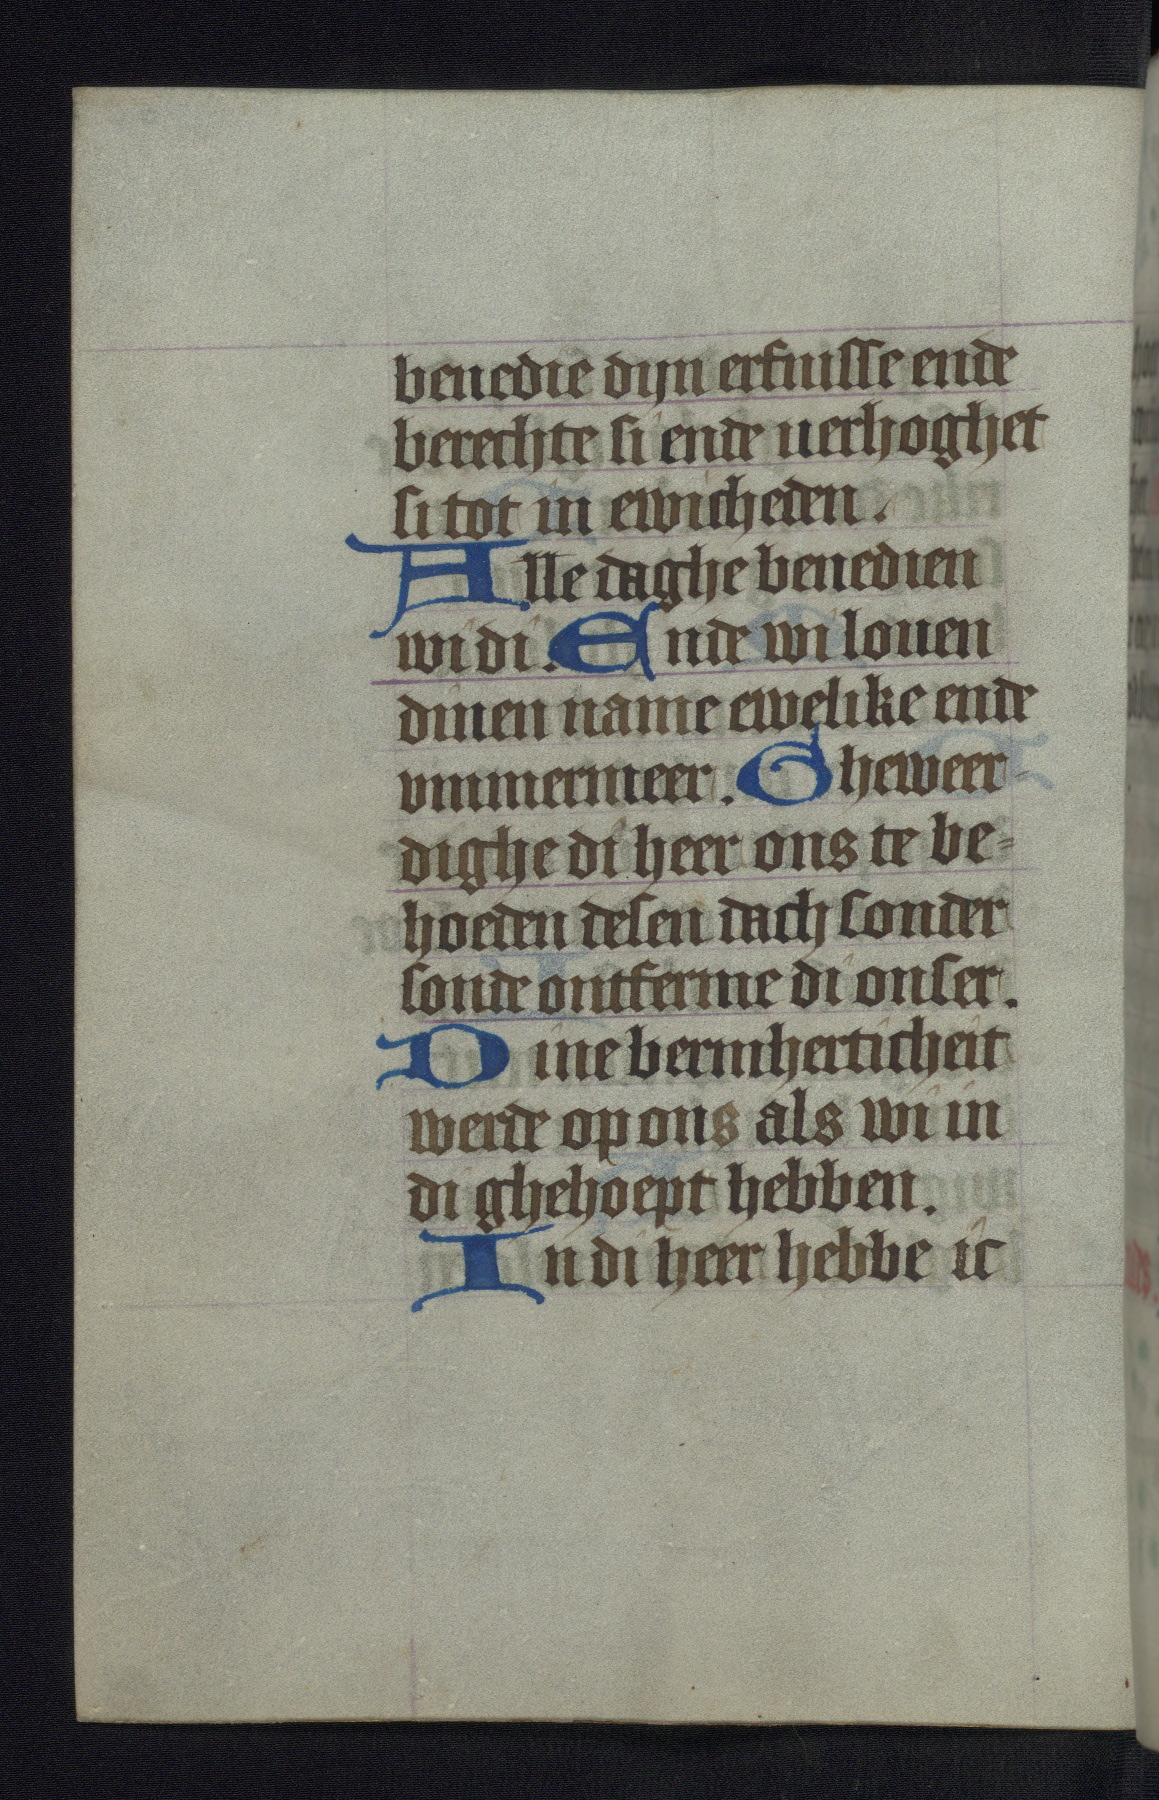 benedie dijn erfnisse ende
berechte si ende uerhoghet
si tot in ewicheden.
Alle daghe benedien
wi di. Ende wi louen
dinen name ewelike ende
vmmermeer. Gheweer-
dighe di heer ons te be-
hoeden desen dach sonder
sonde ontferme di onser.
Dine bermherticheit
werde op ons als wi in
di ghehoept hebben.
In di heer hebbe ic